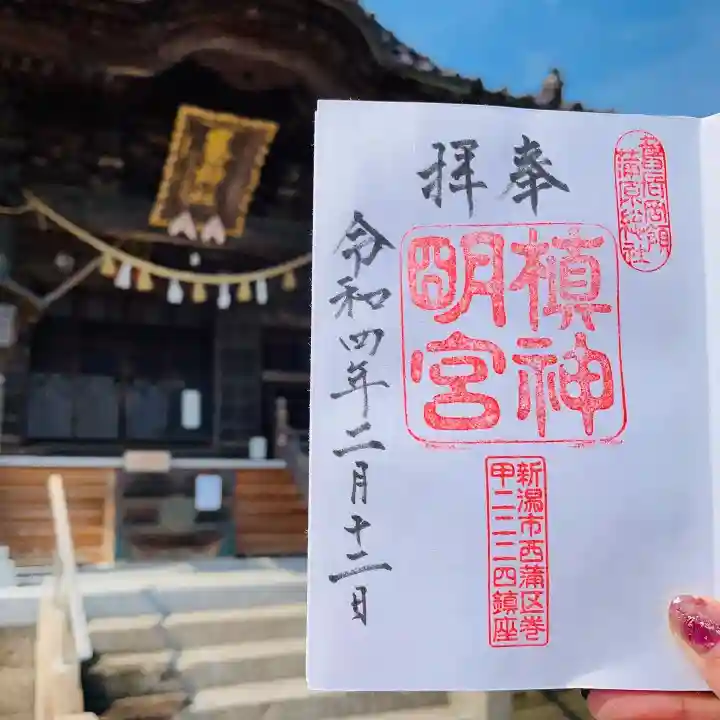 奉拝
蒲原総社
槙神
明宮
新潟市西蒲区巻
甲二二二四鎮座
令和四年二月十二日